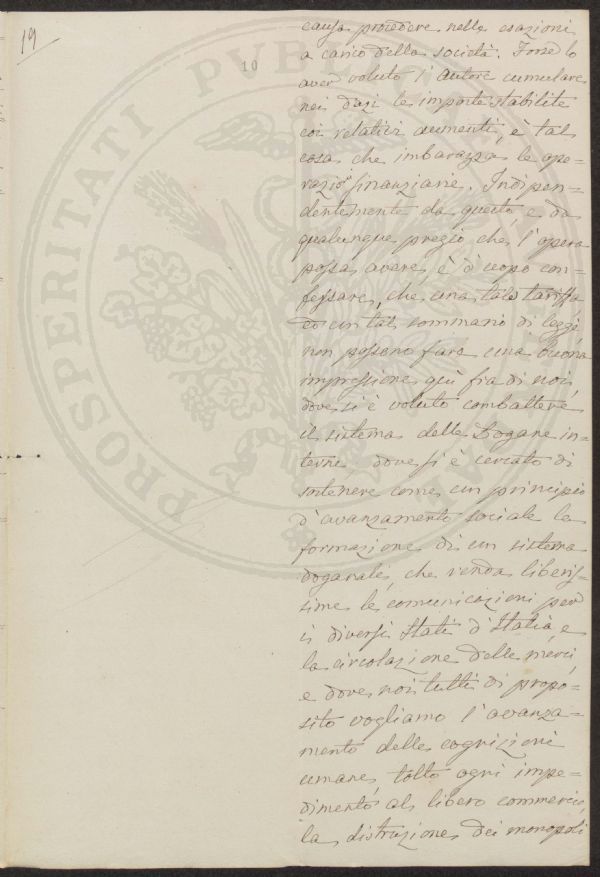 19
10
PROSPERITATI PVBLICAE
causa procedere nelle esazioni
a carico della società. Forse lo
aver voluto l'autore cumulare
nei dazi le imposte stabilite
coi relativi aumenti, è tal
cosa che imbarazza le ope=
razioni finanziarie. Indipen=
dentemente da questo, e da
qualunque pregio, che l'opera
possa avere, è d'uopo con=
fessare, che una tale tariffa,
ed un tal sommario di leggi
non possono fare una buona
impressione quì fra di noi,
dove si è voluto combattere
il sistema delle Dogane in=
terne dove si è cercato di
sostenere come un principio
d'avanzamento sociale la
formazione di un sistema
doganale, che renda liberis=
sime le comunicazioni per
i diversi Stati d'Italia, e
la circolazione delle merci,
e dove noi tutti di propo=
sito vogliamo l'avanza=
mento delle cognizioni
umane, tolto ogni impe=
dimento al libero commercio,
la distruzione dei monopoli